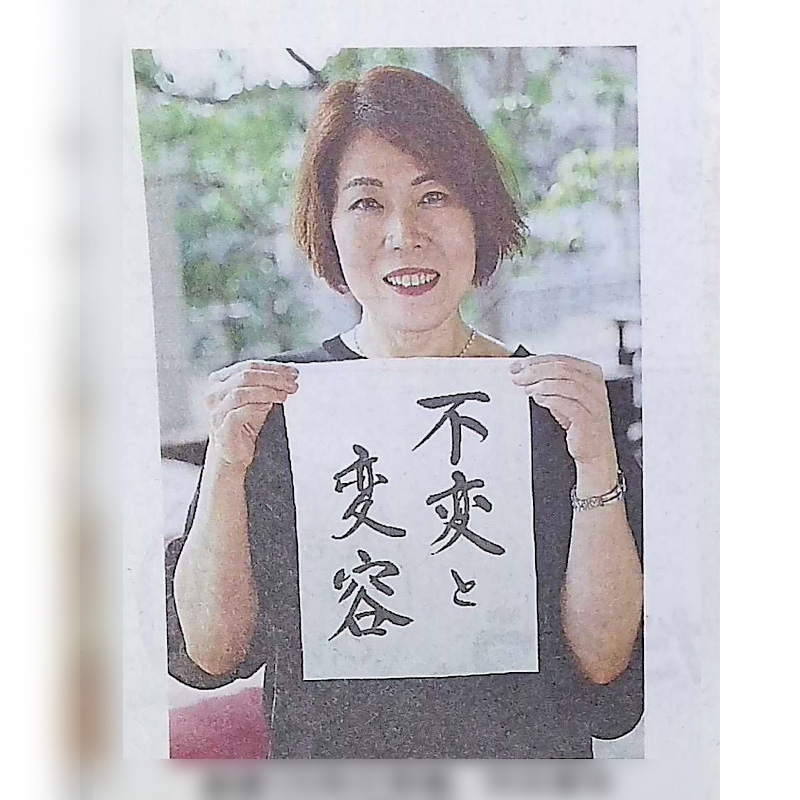 不変と
変容